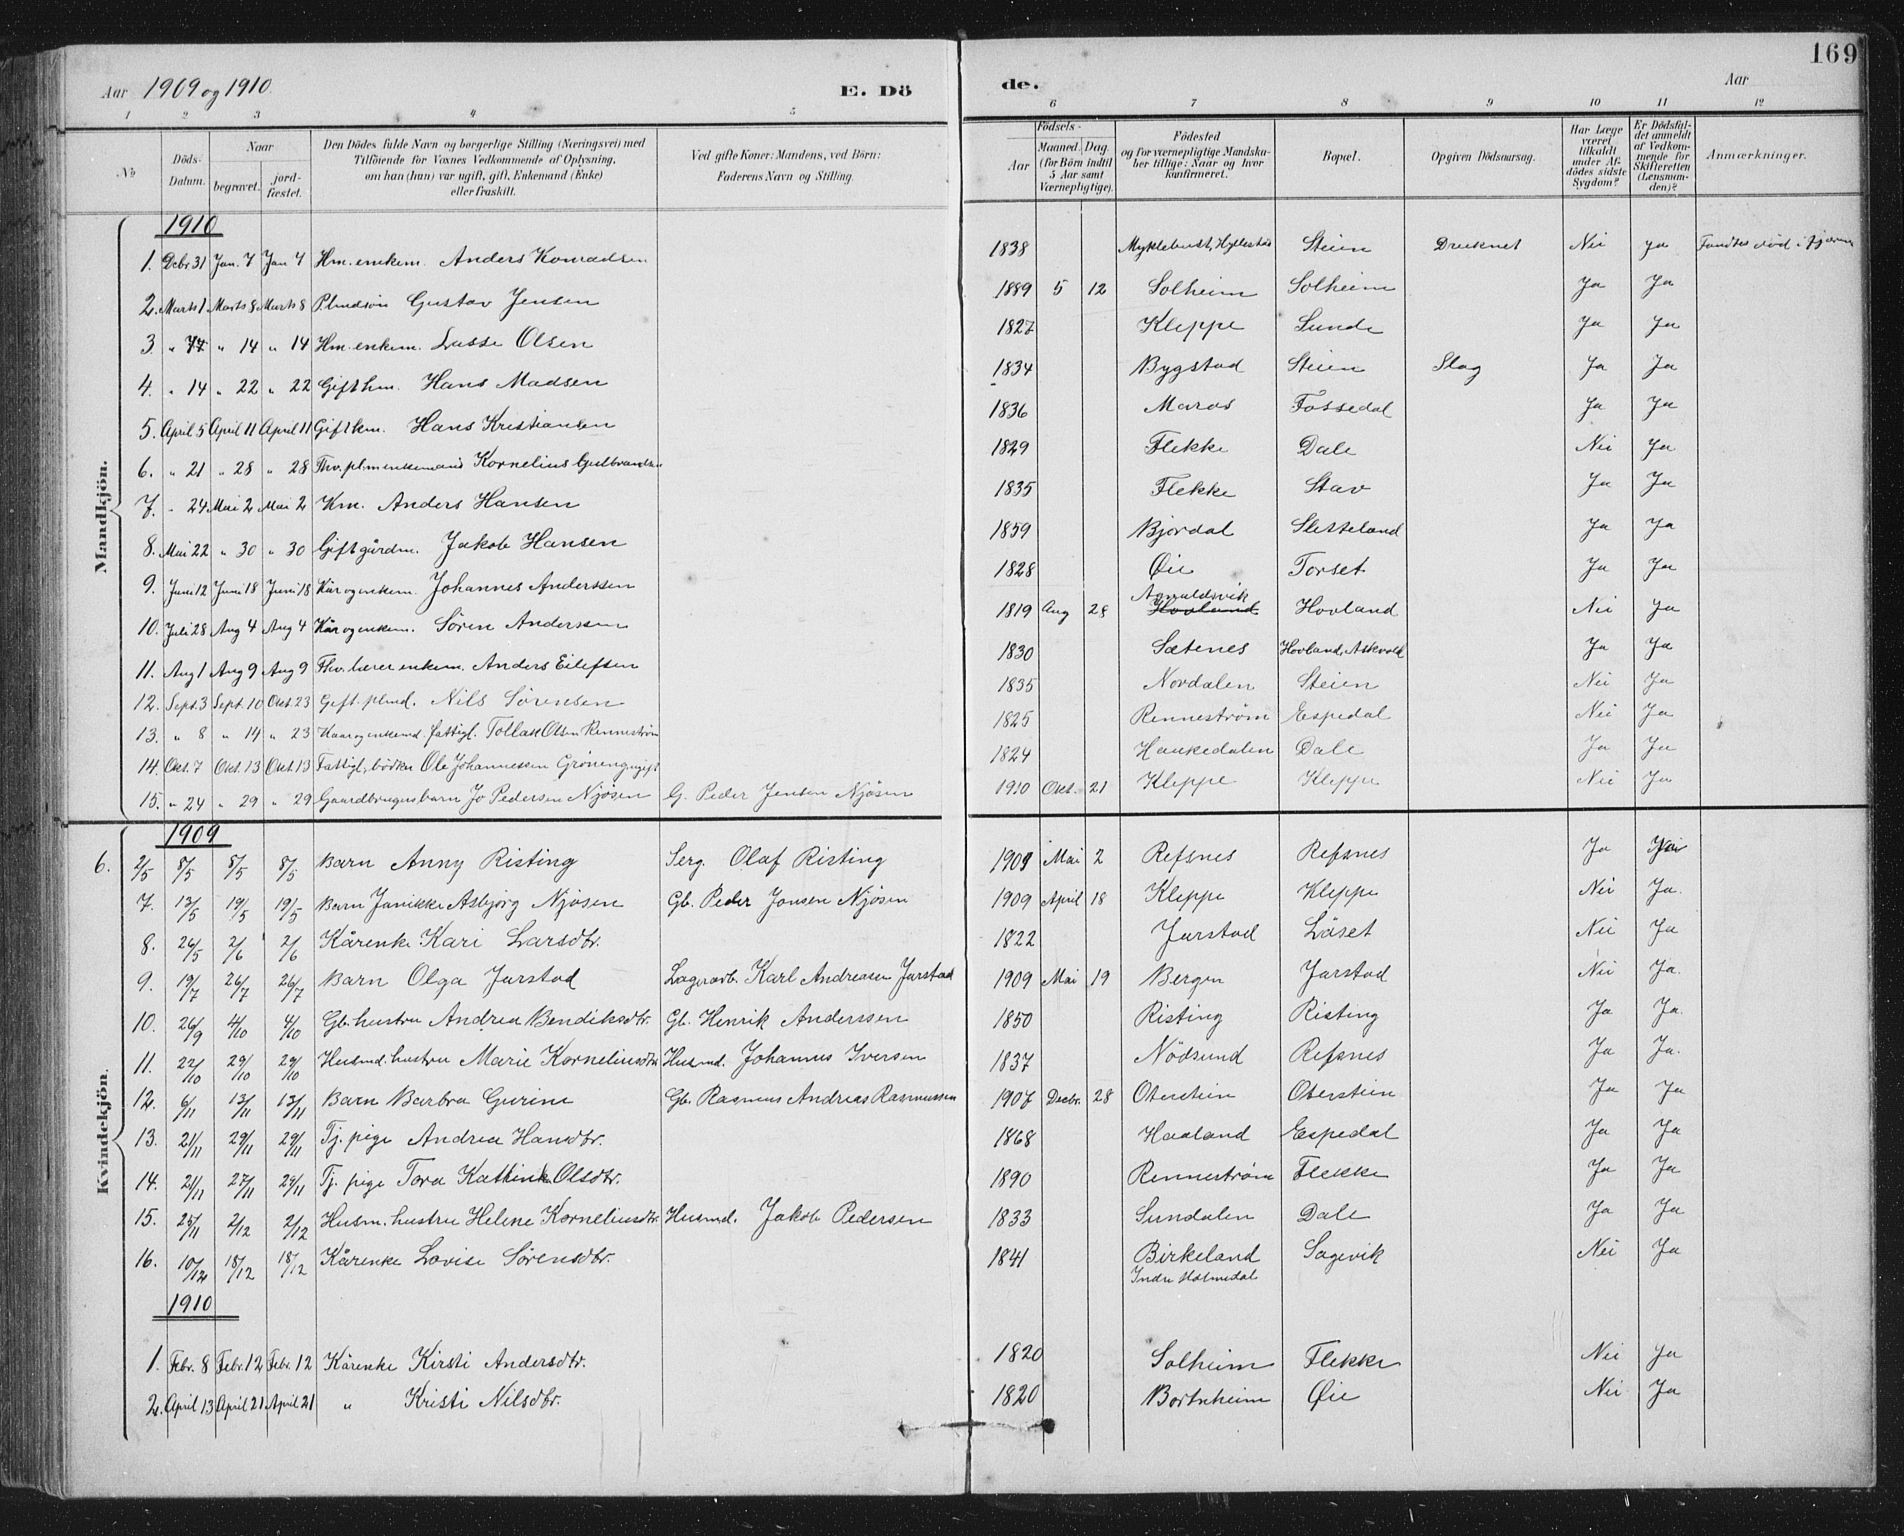 169
Aar 1909 og 1910. E. Dö de. Aar
1 2 3 4 5 6 7 8 9 10 11 12
No Döds-Datum. Naar begravet. jord-fæstet. Den Dödes fulde Navn og borgerlige Stilling (Næringsvei) med Tilföiende for Voxnes Vedkommende af Oplysning, om han (hun) var ugift, gift, Enkemand (Enke) eller fraskilt. Ved gifte Koner: Mandens, ved Börn: Faderens Navn og Stilling. Födsels- Aar Maaned. Dag. (for Börn indtil 5 Aar samt Værnepligtige). Födested og for værnepligtige Mandskaber tillige: Naar og hvor konfirmeret. Bopæl. Opgiven Dödsaarsag. Har Læge været tilkaldt under Afdödes sidste Sygdom? Er Dödsfaldet anmeldt af Vedkommende for Skifteretten (Lensmanden)? Anmærkninger.
Mandkjön.
1910
1. Decbr 31 Jan. 7 Jan 7 Hm. enkem. Anders Konradsen 1838 Myklebust, Hyllestad Steien Druknet Nei ja Fandtes död i fjæren
2. Marts 1 Marts 8 Marts 8 Plmdsön Gustav Jensen 1889 5 12 Solheim Solheim Ja Ja
3. " " 14 " 14 Hm. enkem. Lasse Olsen 1827 Kleppe Sunde Ja Ja
4. " 14 " 22 " 22 Gift hm. Hans Madsen 1834 Bygstad Steien Slag Ja Ja
5. April 5 April 11 April 11 Gift km. Hans Kristiansen 1836 Maras Fossedal Ja Ja
6. " 21 " 28 " 28 Fhv. plm enkemand Kornelius Gulbrandsen 1829 Flekke Dale Nei Ja
7. - 24 Mai 2 Mai 2 Km. Anders Hansen 1835 Flekke Stav Ja Ja
8. Mai 22 " 30 " 30 Gift gårdm. Jakob Hansen 1859 Bjordal Sletteland Ja Ja
9. Juni 12 Juni 18 Juni 18 Kår og enkem. Johannes Anderssen 1828 Øie Torset Ja Ja
10. Juli 28 Aug 4 Aug 4 Kår og enkem. Sören Anderssen 1819 Aug 28 Hovland Hovland Nei Ja
11. Aug 1 Aug 9 Aug 9 Fhv. lærer enkem. Anders Eilefsen 1830 Sætenes Hovland, Askvold Ja Ja
12. Sept. 3 Sept. 10 Okt. 23 Gift plmd. Nils Sörensen 1835 Nordalen Steien Nei Ja
13. " 8 " 14 " 23 Kaar og enkemd. fattigl. Tollak Olsen Renneström 1825 Renneström Espedal Nei Ja
14. Okt. 7 Okt. 13 Okt. 13 Fattigl. bödker Ole Johannesen Gröneng ugift 1824 Haukedalen Dale Ja Ja
15. " 24 " 29 " 29 Gaardbrugersbarn Jo Pedersen Njösen G. Peder Jensen Njösen 1910 Okt. 21 Kleppe Kleppe Nei Ja
Kvindekjön.
1909
6. 2/5 8/5 8/5 8/5 Barn Anny Risting Serg. Olaf Risting 1909 Mai 2 Refsnes Refsnes Ja Nei
7. 13/5 19/5 19/5 Barn Janikke Asbjörg Njösen Gb. Peder Jonsen Njösen 1909 April 18 Kleppe Kleppe Nei Ja.
8. 26/5 2/6 2/6 Kårenke Kari Larsdtr. 1822 Jarstad Låset Nei Ja
9. 19/7 26/7 26/7 Barn Olga Jarstad Lagerarb. Karl Andreasen Jarstad 1909 Mai 19 Bergen Jarstad Nei Ja.
10. 26/9 4/10 4/10 Gb. hustru Andrea Bendiksdtr. Gb. Henrik Anderssen 1850 Risting Risting Ja Ja.
11. 22/10 29/10 29/10 Husmd. hustru Marie Korneliusdtr Husmd. Johannes Iversen 1837 Nödsund Refsnes Ja Ja.
12. 6/11 13/11 13/11 Barn Barbra Gurine Gb. Rasmus Andreas Rasmussen 1907 Decbr. 28 Oterstein Oterstein Ja Ja
13. 21/11 29/11 29/11 Tj. pige Andrea Hansdtr. 1868 Haaland Espedal Ja Ja
14. 21/11 27/11 29/11 Tj. pige Tora Kathinka Olsdtr. 1890 Renneström Flekke Ja Ja
15. 25/11 2/12 2/12 Husm. hustru Helene Korneliusdtr. Husmd. Jakob Pedersen 1833 Sundalen Dale Ja Ja
16. 10/12 18/12 18/12 Kårenke Lovise Sörensdtr. 1841 Birkeland Indre Holmedal Sagevik Nei Ja
1910
1. Febr. 8 Febr. 12 Febr. 12 Kårenke Kirsti Andersdtr. 1820 Solheim Flekke Nei Ja
2. April 13 April 21 April 21 " Kristi Nilsdtr. 1820 Bortnheim Øie Nei Ja